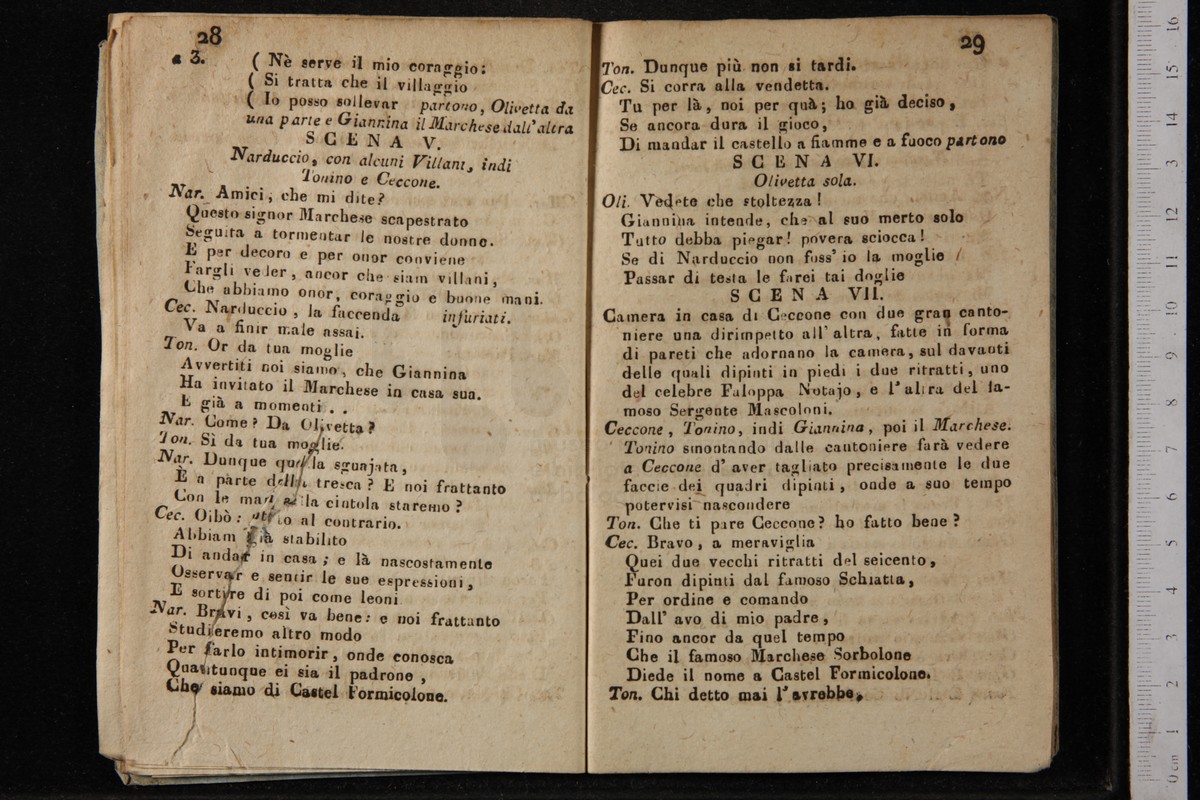 28
a 3. ( Nè serve il mio coraggio:
( Si tratta che il villaggio
( Io posso sollevar partono, Olivetta da
una parte e Giannina il Marchese dall' altra
SCENA V.
Narduccio, con alcuni Villani, indi
Tonino e Ceccone.
Nar. Amici, che mi dite?
Questo signor Marchese scapestrato
Seguita a tormentar le nostre donne.
E per decoro e per onor conviene
Fargli veder, ancor che siam villani,
Che abbiamo onor, coraggio e buone mani.
Cec. Narduccio, la faccenda infuriati.
Va a finir male assai.
Ton. Or da tua moglie
Avvertiti noi siamo, che Giannina
Ha invitato il Marchese in casa sua.
E già a momenti . .
Nar. Come? Da Olivetta?
Ton. Sì da tua moglie.
Nar. Dunque quella sguajata,
È a parte della tresca? E noi frattanto
Con le mani alla cintola staremo?
Cec. Oibò: tutto al contrario.
Abbiam già stabilito
Di andar in casa; e là nascostamente
Osservar e sentir le sue espressioni,
E sortire di poi come leoni
Nar. Bravi, così va bene: e noi frattanto
Studieremo altro modo
Per farlo intimorir, onde conosca
Quantunque ei sia il padrone,
Che siamo di Castel Formicolone.
29
Ton. Dunque più non si tardi.
Cec. Si corra alla vendetta.
Tu per là, noi per quà; ho già deciso,
Se ancora dura il gioco,
Di mandar il castello a fiamme e a fuoco partono
SCENA VI.
Olivetta sola.
Oli. Vedete che stoltezza!
Giannina intende, che al suo merto solo
Tutto debba piegar! povera sciocca!
Se di Narduccio non foss' io la moglie
Passar di testa le farei tai doglie
SCENA VII.
Camera in casa di Ceccone con due gran canto-
niere una dirimpetto all' altra, fatte in forma
di pareti che adornano la camera, sul davanti
delle quali dipinti in piedi i due ritratti, uno
del celebre Faloppa Notajo, e l' altra del fa-
moso Sergente Mascoloni.
Ceccone, Tonino, indi Giannina, poi il Marchese.
Tonino smontando dalle cantoniere farà vedere
a Ceccone d' aver tagliato precisamente le due
faccie dei quadri dipinti, onde a suo tempo
potervisi nascondere
Ton. Che ti pare Ceccone? ho fatto bene?
Cec. Bravo, a meraviglia
Quei due vecchi ritratti del seicento,
Furon dipinti dal famoso Schiatta,
Per ordine e comando
Dall' avo di mio padre,
Fino ancor da quel tempo
Che il famoso Marchese Sorbolone
Diede il nome a Castel Formicolone.
Ton. Chi detto mai l' avrebbe,
0 cm 1 2 3 4 5 6 7 8 9 10 11 12 13 14 15 16